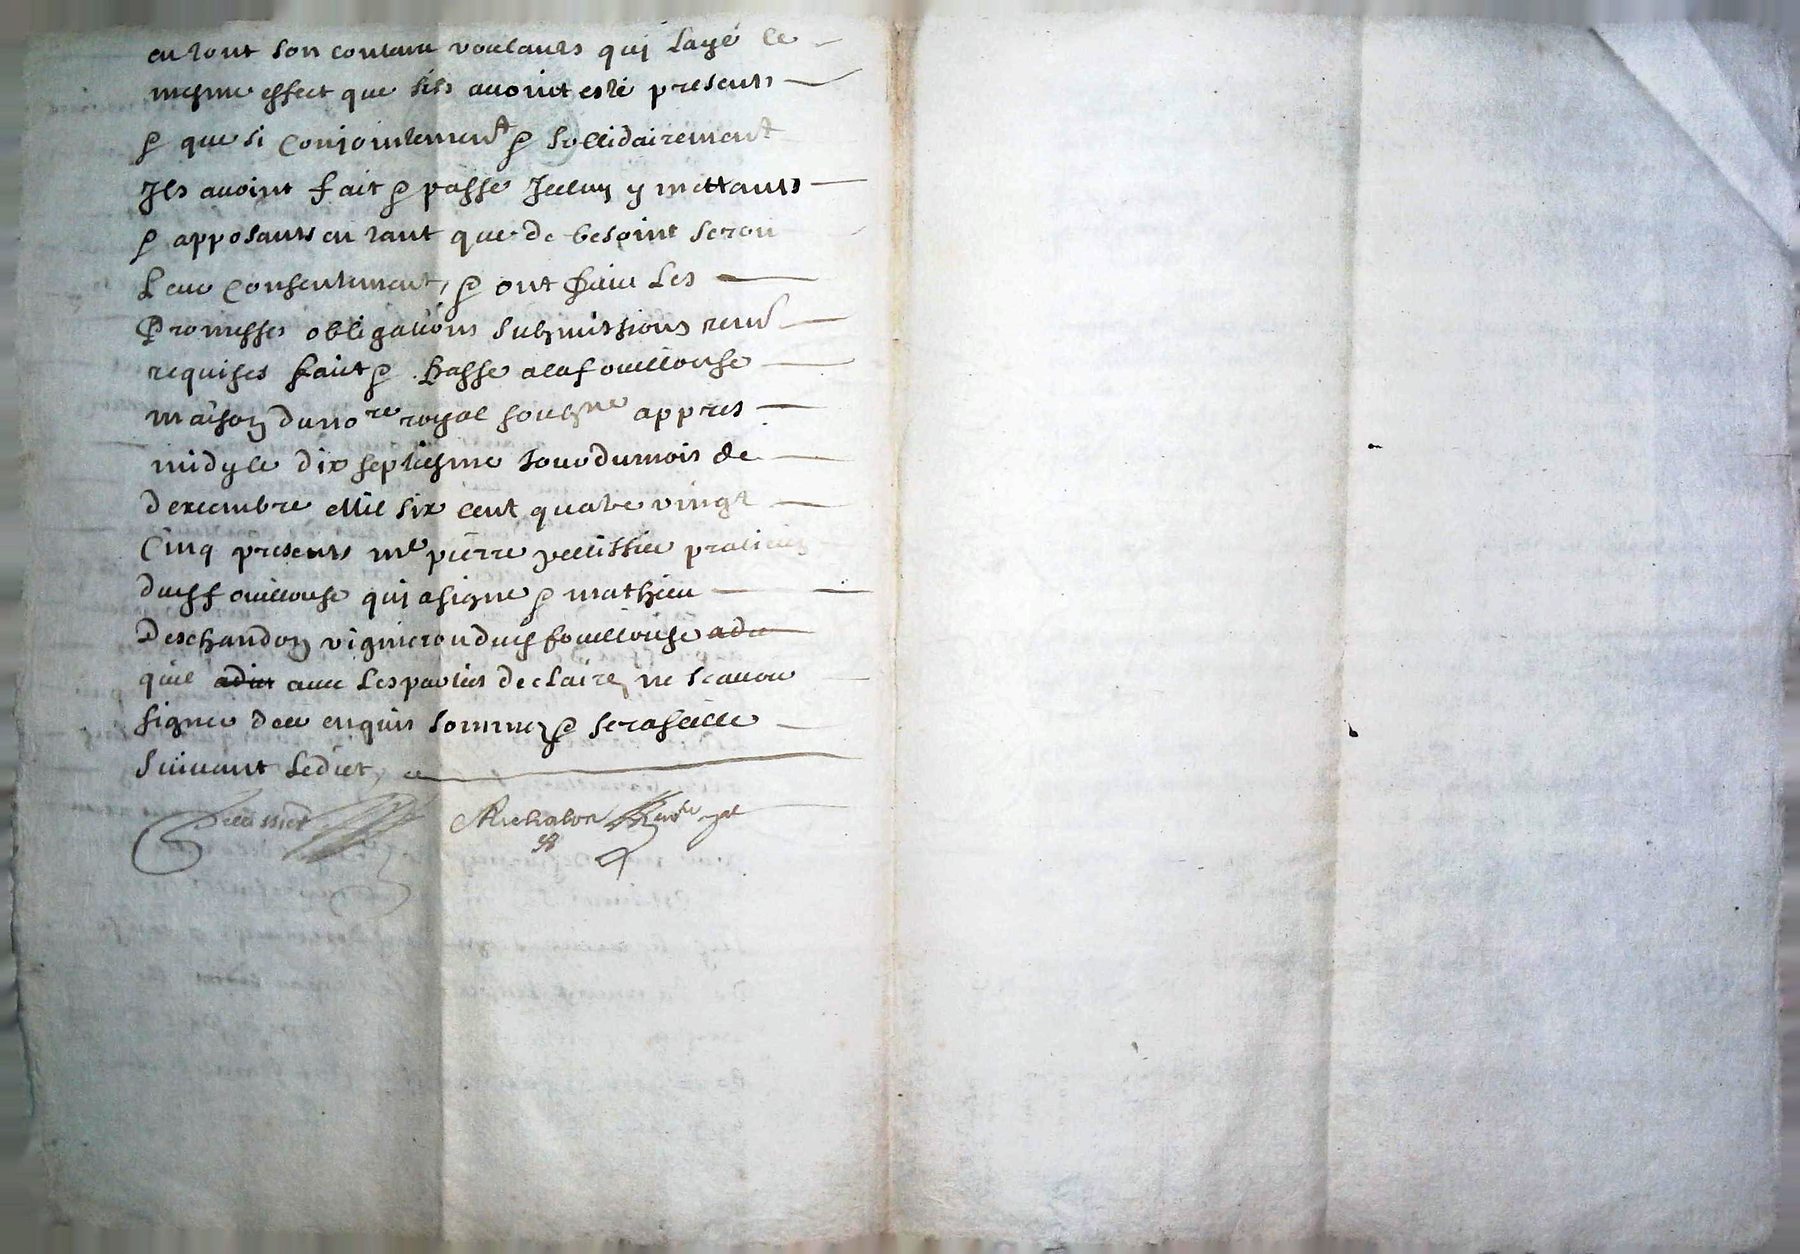 en tout son contenu voulants qui l'ayé le
mesme effect que s'ils avoint esté presents
& que si conjointement & sollidairement
Ils avoint fait & passe Jceluy y mettants
& apposants en tant que de besoint seroit
Leur consentement, & ont faict Les
Promesses obligations submissions renō
requises fait & Passe a la fouillouse
maison du no.re royal soubz.ne appres
midy le dix septiesme Jour du mois de
decembre Mil six cent quatre vingt
Cinq presents m.e pierre pellissier praticien
dud fouillouse qui a signe & mathieu
Deschandon vigneron dud fouillouse
qui avec Les parties declaire, ne scavoir
signer de ce enquis sommez & sera scellé
suivant Ledict,
Pelissier Michalon no.re royal